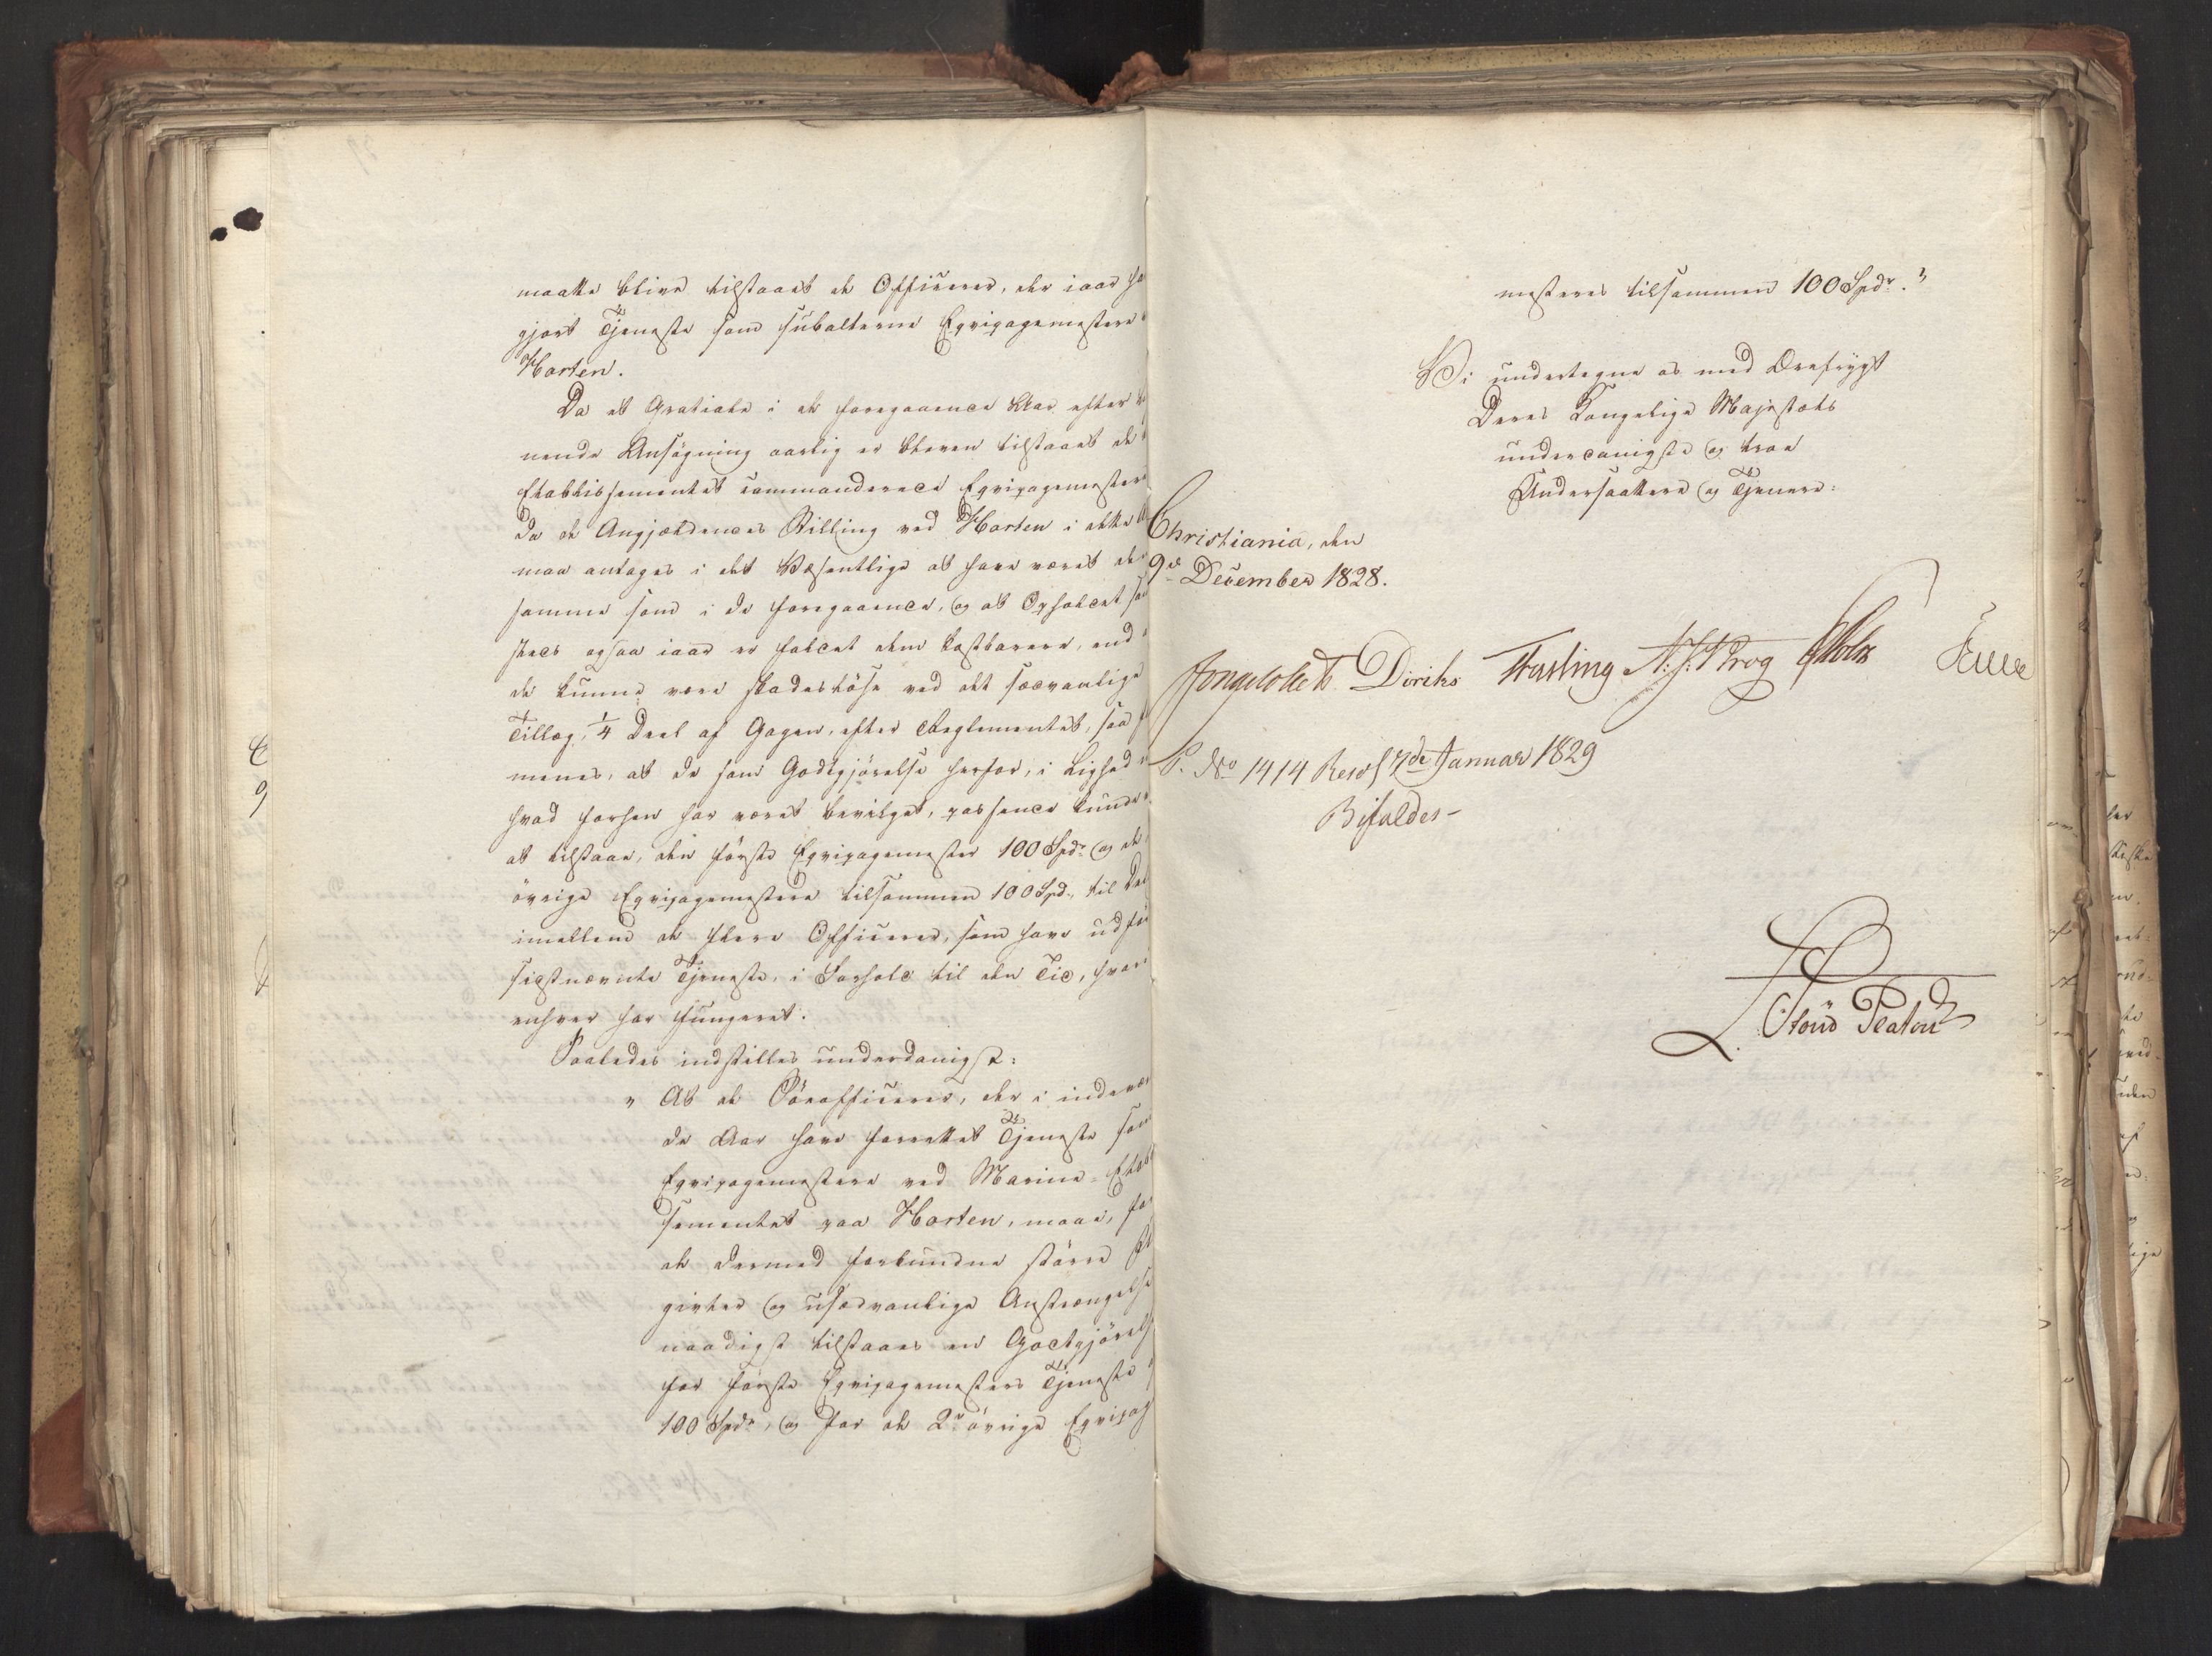 maatte blive tilstaaet de Officerer, der iaar ha
gjort Tjeneste som subalterne Eqvipagemestere
Horten.
Da et Gratiale i de foregaaende Aar efter
nende Ansøgning aarlig er bleven tilstaaet de
Etablissementet commanderede Eqvipagemestere
da de Angjældendes Stilling ved Horten i dette
maa antages i det Væsentlige at have været den
samme som i de foregaaende, og at Opholdet
stæds ogsaa iaar er faldet dem kostbarere, end
de kunne være skadesløse ved det sædvanlige
Tillæg, 1/4 Deel af Gagen, efter Reglementet, saa
menes, at de som Godtgjørelse herfor, i Lighed
hvad forhen har været bevilget, passende kunde
at tilstaae, den første Eqvipagemester 100 Spdr og de
øvrige Eqvipagemestere tilsammen 100 Spd., til De
imellem de flere Officerer, som have udfø
sidstnævnte Tjeneste, i Forhold til den Tid, hvori
enhver har fungeret.
Saaledes indstilles underdanigst:
" At de Søeofficerer, der i indevæ
de Aar have forrettet Tjeneste som
Eqvipagemestere ved Marine-Etab
sementet paa Horten, maae, for
de dermed forbundne større
givter og usædvanlige Anstrængelse
naadigst tilstaaes en Godtgjørelse
for første Eqvipagemesters Tjeneste
100 Spdr, og for de 2de øvrige Eqvipag
mesteres tilsammen 100 Spdr."
Vi undertegne os med Ærefrygt
Deres Kongelige Majestæts
underdanigste og troe
Undersaattere og Tjenere:
Christiania, den
9de December 1828.
Collett Diriks Fasting A. J. Krog Holst
P. No 1414 Resol 7de Januar 1829
Bifaldes-
Carl Johan
Løvenskiold